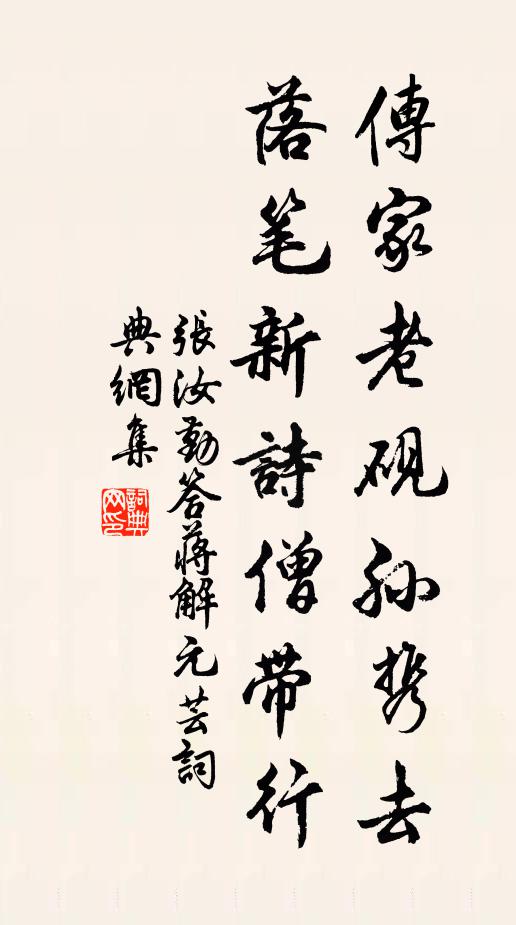 傳家老硯孫携去
落笔新詩僧帶行
張汝勤答蔣解元芸詞
典網集
詞典網印